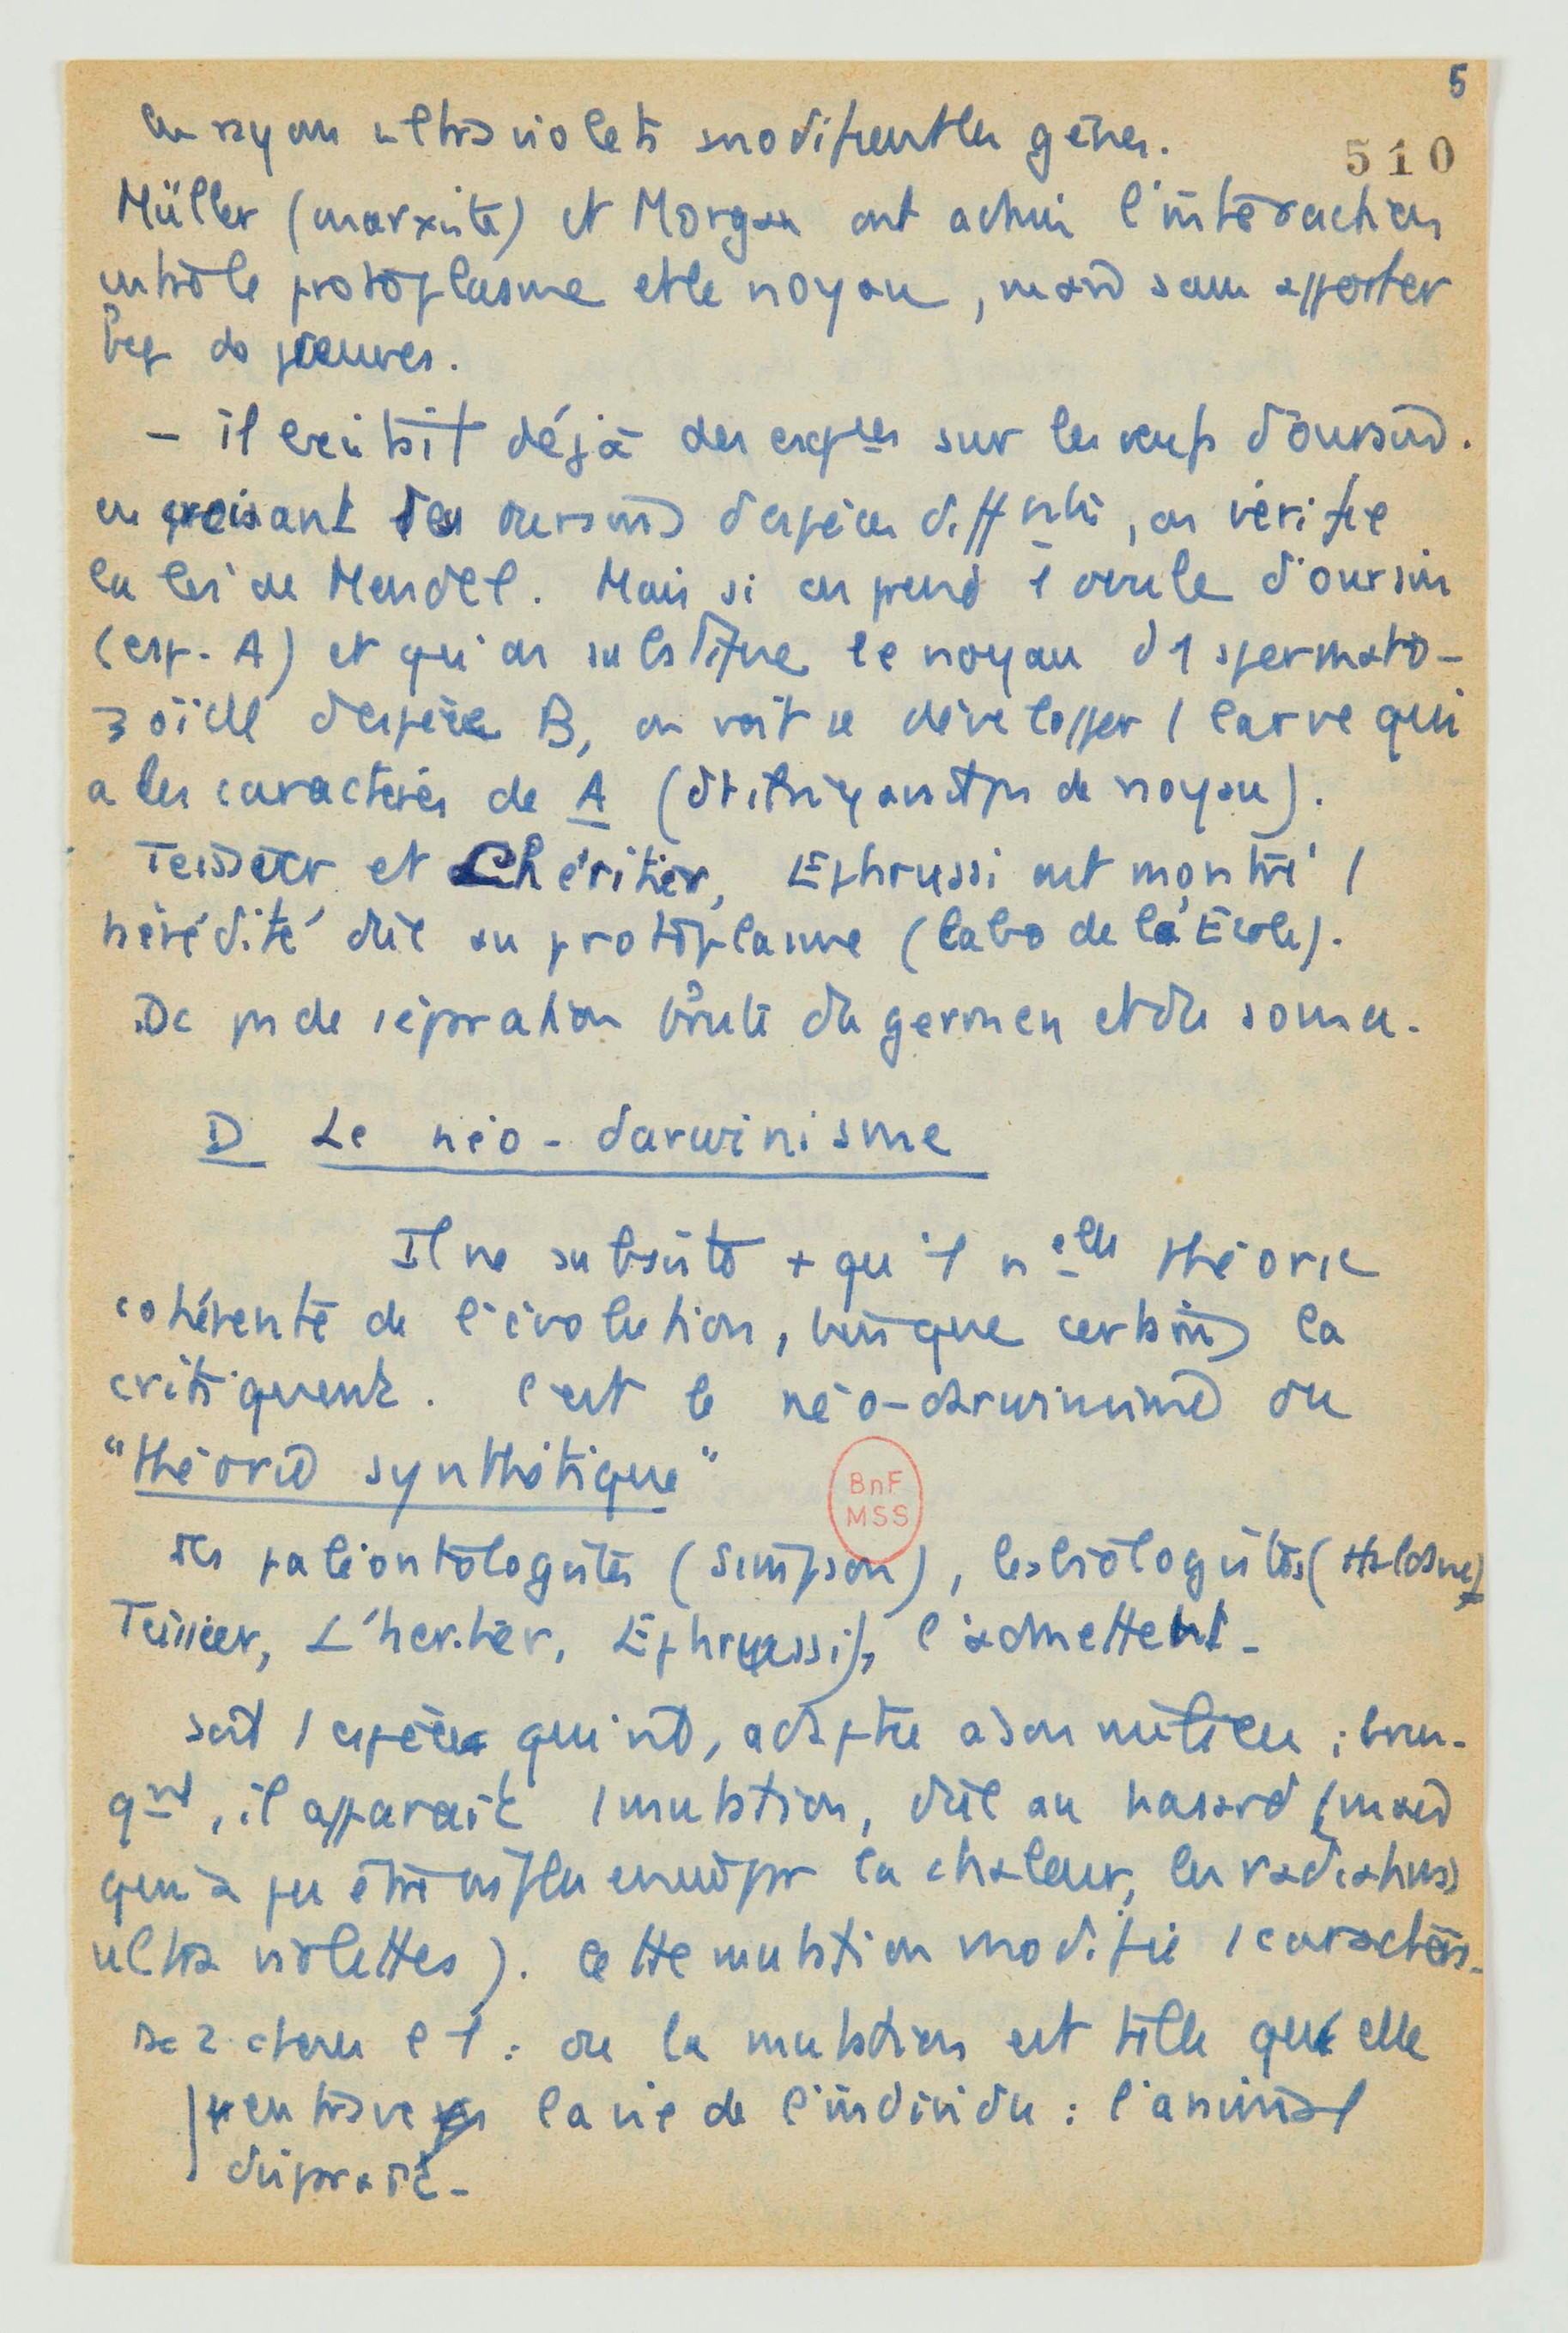 5
510
les rayons ultra violets modifient les gènes.
Müller (marxiste) et Morgan ont admis l'interaction
entre le protoplasme et le noyau, mais sans apporter
bcp de preuves.
- il existait déjà des expces sur les oeufs d'oursins.
en croisant des oursins d'espèces difftes, on vérifie
la loi de Mendel. Mais si on prend 1 ovule d'oursin
(esp. A) et qu'on substitue le noyau d'1 spermato-
zoïde d'espèce B, on voit se développer 1 larve qui
a les caractères de A (de noyau).
Teissier et Lhéritier, Ephrussi ont montré 1
hérédité dûe au protoplasme (labo de l'Ecole).
Dc ps de séparation brute du germen et du soma.
D Le néo-darwinisme
Il ne subsiste + qu'1 slle théorie
cohérente de l'évolution, bien que certains la
critiquent. c'est le néo-darwinisme ou
"théorie synthétique"
BnF
MSS
des paléontologistes (Simpson), les biologistes (Haldane,
Teissier, L'héritier, Ephrussi), l'admettent.
soit 1 espèce qui vit, adaptée à son milieu ; brus-
qmt, il apparaît 1 mutation, dûe au hasard (mais
qui a pu être influencée par la chaleur, les radiations
ultra violettes). Cette mutation modifie 1 caractère.
Dc 2 choses l'1 : ou la mutation est telle qu'elle
entrave la vie de l'individu : l'animal
disparaît.